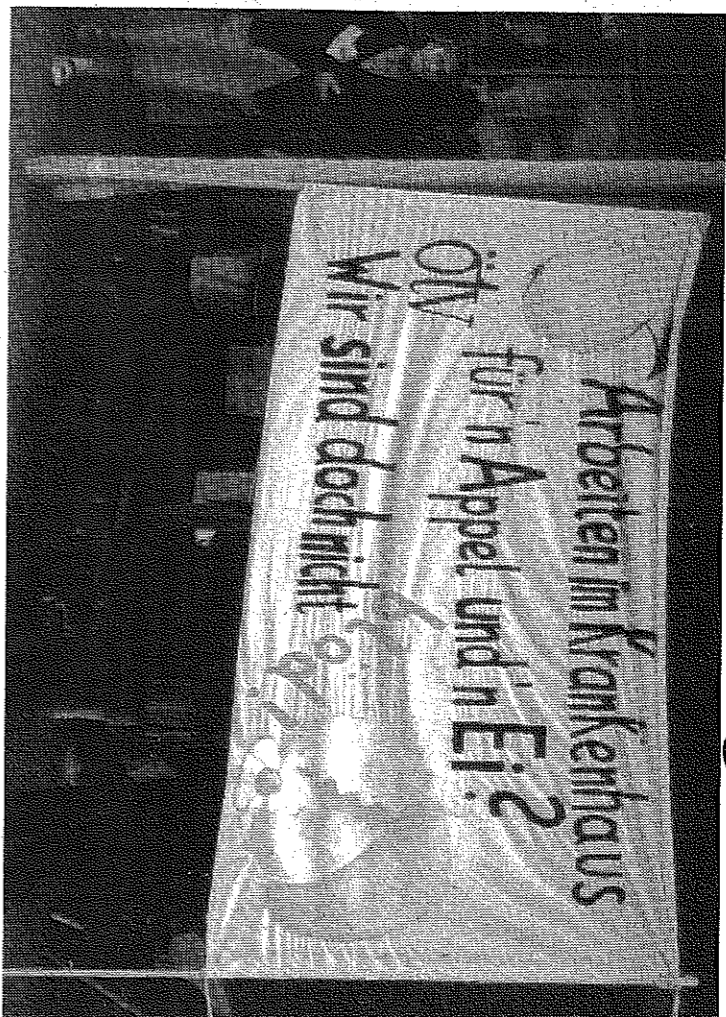 Arbeiten im Krankenhaus
für'n Appel und'n Ei?
ötv
Wir sind doch nicht